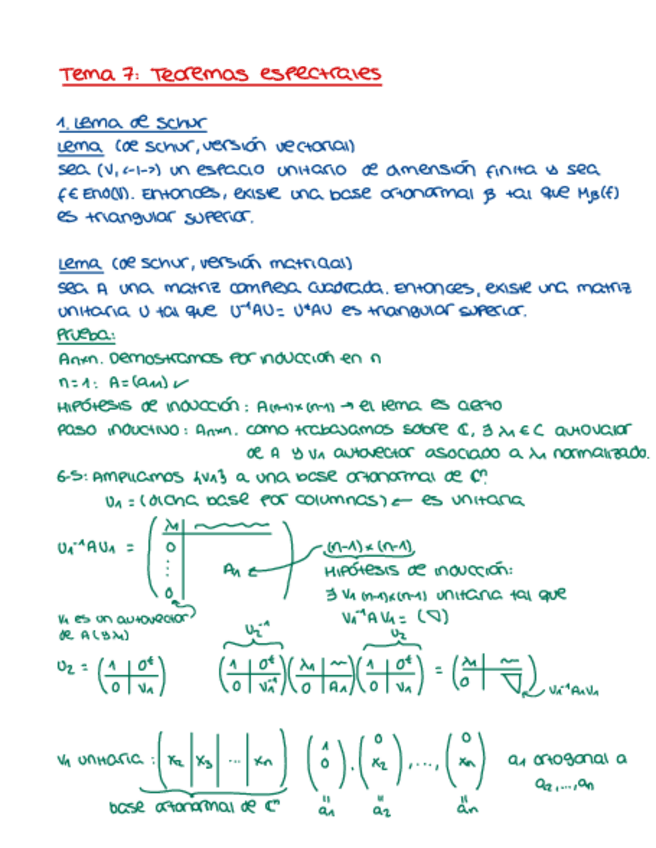 Tema 7: Teoremas espectrales
1. Lema de Schur
Lema (de Schur, versión vectorial)
Sea (V, <-|->) un espacio unitario de dimensión finita y sea
f ∈ End(V). Entonces, existe una base ortonormal B tal que M_B(f)
es triangular superior.
Lema (de Schur, versión matricial)
Sea A una matriz compleja cuadrada. Entonces, existe una matriz
unitaria U tal que U⁻¹AU = U*AU es triangular superior.
Prueba:
Anxn. Demostramos por inducción en n
n=1: A=(a₁₁) ✓
Hipótesis de inducción: A(n-1)x(n-1) → el lema es cierto
Paso inductivo: Anxn. Como trabajamos sobre ℂ, ∃ λ₁ ∈ ℂ autovalor
de A y v₁ autovector asociado a λ₁ normalizado.
G-S: Ampliamos {v₁} a una base ortonormal de ℂⁿ
U₁ = (dicha base por columnas) ← es unitaria
U₁⁻¹AU₁ = ( λ₁ | ~ ; 0 ⋮ 0 | A₁ ) (n-1)x(n-1)
Hipótesis de inducción:
∃ V₁ (n-1)x(n-1) unitaria tal que
V₁⁻¹AV₁ = (▽)
v₁ es un autovector
de A (y λ₁)
U₂⁻¹ U₂
U₂ = ( 1 | 0ᵗ ; 0 | V₁ ) ( 1 | 0ᵗ ; 0 | V₁⁻¹ ) ( λ₁ | ~ ; 0 | A₁ ) ( 1 | 0ᵗ ; 0 | V₁ ) = ( λ₁ | ~ ; 0 | ▽ ) V₁⁻¹A₁V₁
V₁ unitaria: ( x₂ | x₃ | ... | xn ) ( 1 ; 0 ), ( 0 ; x₂ ), ..., ( 0 ; xn ) a₁ ortogonal a
a₂, ..., an
base ortonormal de ℂⁿ = a₁ = a₂ = an